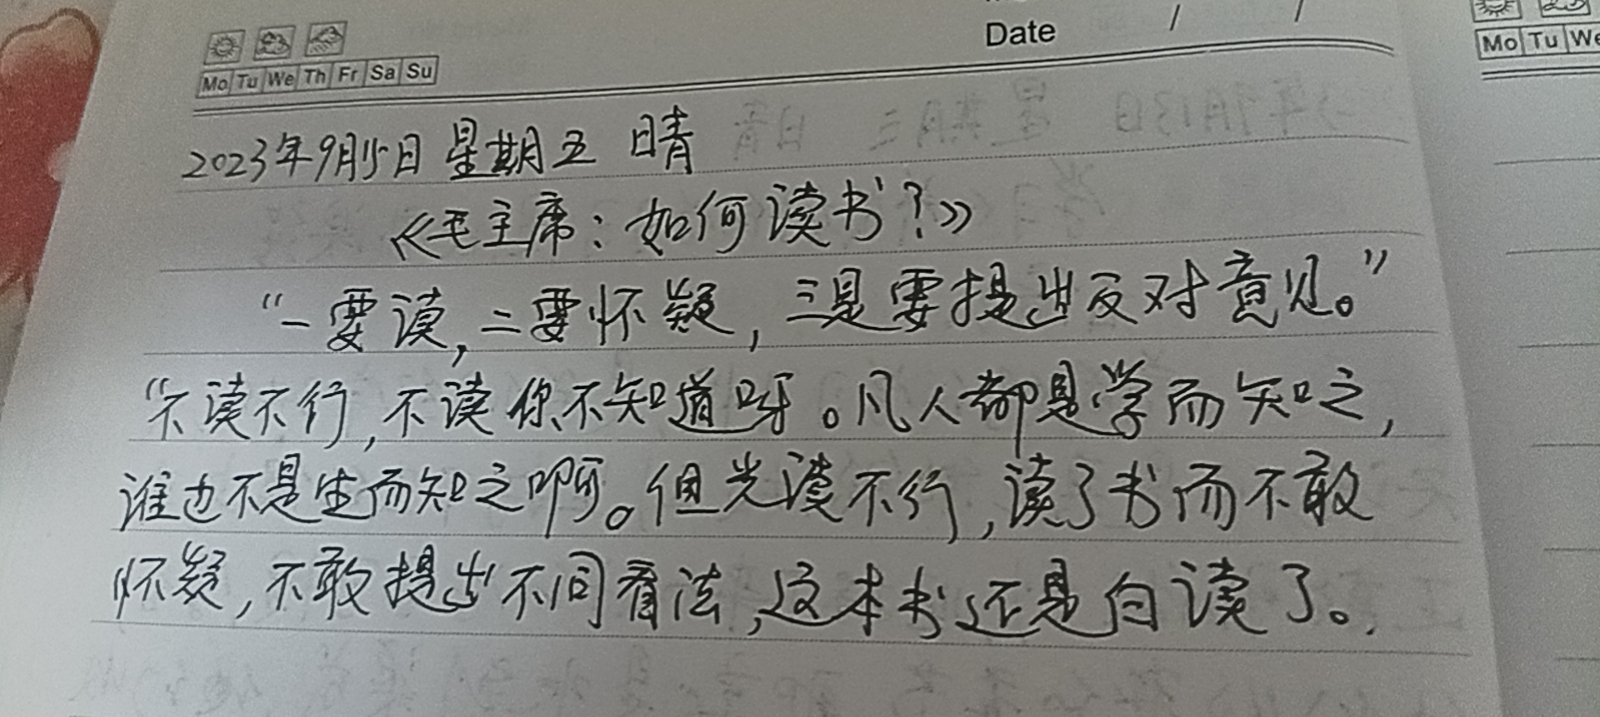 Date / /
Mo Tu We Th Fr Sa Su
Mo Tu We
2023年9月15日 星期五 晴
《毛主席：如何读书？》
“一要读，二要怀疑，三是要提出反对意见。”
“不读不行，不读你不知道呀。凡人都是学而知之，
谁也不是生而知之啊。但光读不行，读了书而不敢
怀疑，不敢提出不同看法，这本书还是白读了。